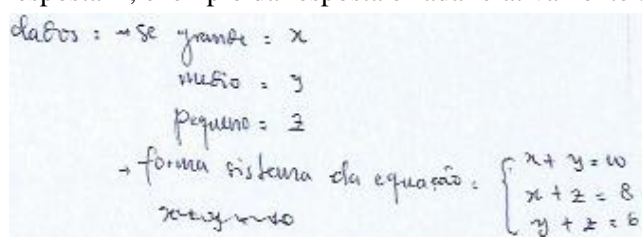 dados : → se grande : x
medio : y
pequeno : z
→ forma sistema da equação : { x + y = 10
x + z = 8
y + z = 6